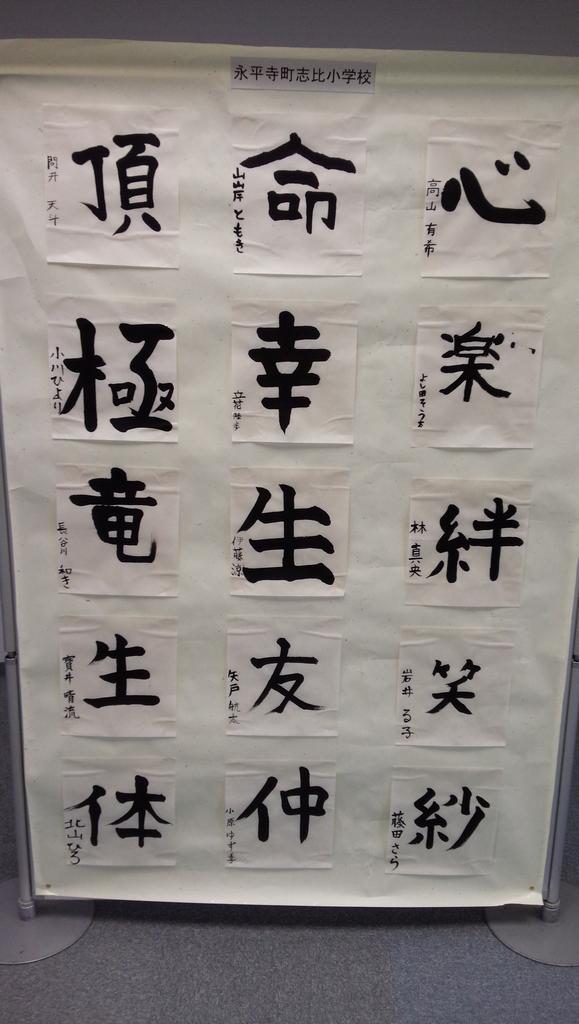 永平寺町志比小学校
心
高山 有希
命
山岸 ともき
頂
天斗
楽
よし田そう太
幸
立花
極
小川ひより
絆
林 真央
生
伊藤涼
竜
長谷川 和き
笑
岩井 る子
友
矢戸 航太
生
寶井 晴流
紗
藤田さら
仲
小原ゆず季
体
北山ひろ